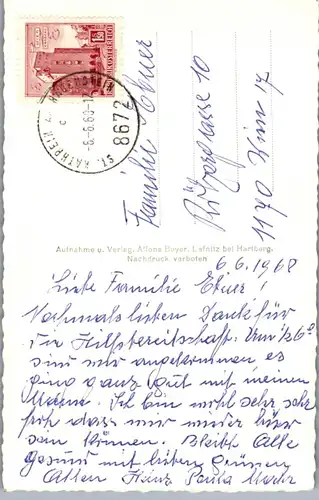 Familie Ebner
Rötzergasse 10
1170 Wien 17
REPUBLIK ÖSTERREICH
ST. KATHREIN A. HAUENSTEIN
-6.-6.68-17
c
8672
Aufnahme u. Verlag, Alfons Beyer, Lafnitz bei Hartberg.
Nachdruck verboten
6 6. 1968
Liebe Familie Ebner!
Nochmals lieben Dank für
die Hilfsbereitschaft. Um ½ 6ʰ
sind wir angekommen es
ging ganz gut mit meinen
Mann. Ich bin wohl sehr sehr
froh dass wir wieder hier
sein können. Bleibt Alle
gesund mit lieben Grüssen
Allen Heinz Paula